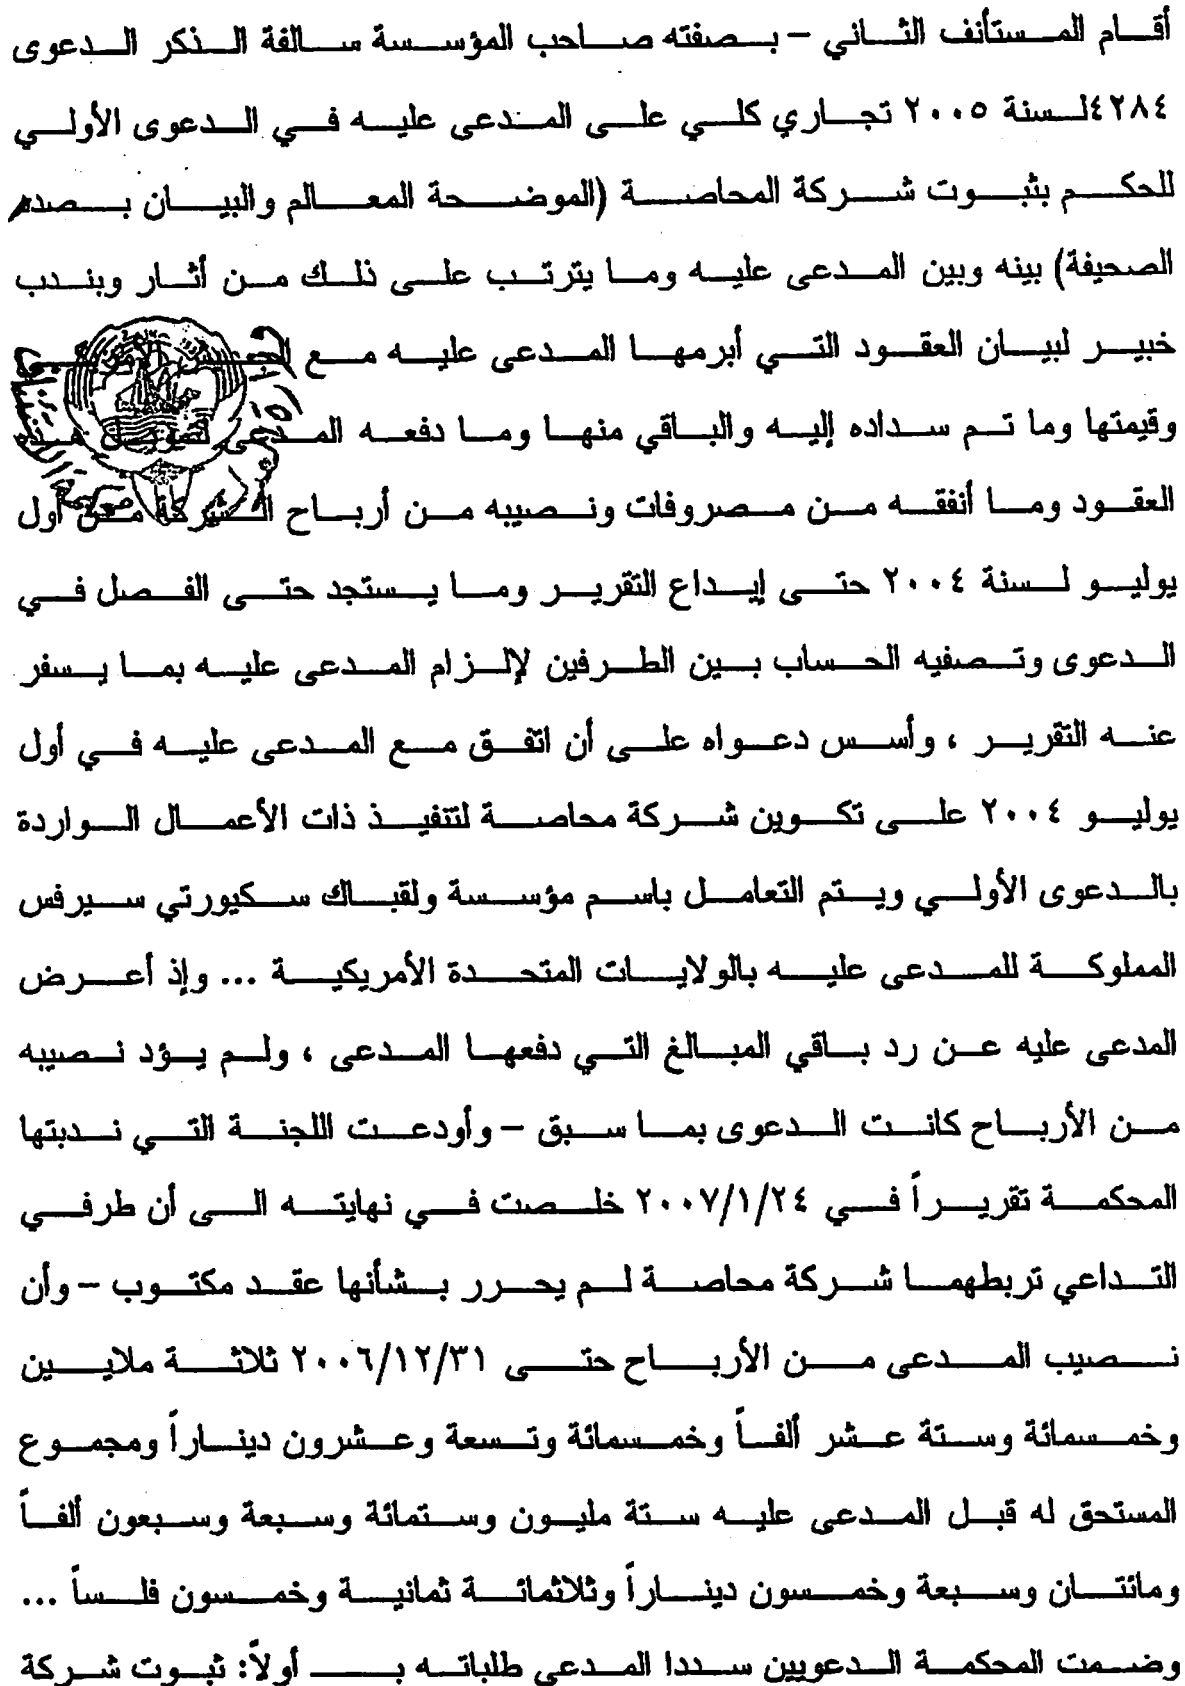 أقام المستأنف الثاني – بصفته صاحب المؤسسة سالفة الذكر الدعوى
٤٢٨٤لسنة ٢٠٠٥ تجاري كلي على المدعى عليه في الدعوى الأولي
للحكم بثبوت شركة المحاصة (الموضحة المعالم والبيان بصدر
الصحيفة) بينه وبين المدعى عليه وما يترتب على ذلك من أثار وبندب
خبير لبيان العقود التي أبرمها المدعى عليه مع
وقيمتها وما تم سداده إليه والباقي منها وما دفعه المدعى لتمويل هذه
العقود وما أنفقه من مصروفات ونصيبه من أرباح الشركة من أول
يوليو لسنة ٢٠٠٤ حتى إيداع التقرير وما يستجد حتى الفصل في
الدعوى وتصفيه الحساب بين الطرفين لإلزام المدعى عليه بما يسفر
عنه التقرير ، وأسس دعواه على أن اتفق مع المدعى عليه في أول
يوليو ٢٠٠٤ على تكوين شركة محاصة لتنفيذ ذات الأعمال الواردة
بالدعوى الأولي ويتم التعامل باسم مؤسسة ولقباك سكيورتي سيرفس
المملوكة للمدعى عليه بالولايات المتحدة الأمريكية ... وإذ أعرض
المدعى عليه عن رد باقي المبالغ التي دفعها المدعى ، ولم يؤد نصيبه
من الأرباح كانت الدعوى بما سبق – وأودعت اللجنة التي ندبتها
المحكمة تقريراً في ٢٠٠٧/١/٢٤ خلصت في نهايته الى أن طرفي
التداعي تربطهما شركة محاصة لم يحرر بشأنها عقد مكتوب – وأن
نصيب المدعى من الأرباح حتى ٢٠٠٦/١٢/٣١ ثلاثة ملايين
وخمسمائة وستة عشر ألفاً وخمسمائة وتسعة وعشرون ديناراً ومجموع
المستحق له قبل المدعى عليه ستة مليون وستمائة وسبعة وسبعون ألفاً
ومائتان وسبعة وخمسون ديناراً وثلاثمائة ثمانية وخمسون فلساً ...
وضمت المحكمة الدعويين سددا المدعي طلباته بــ أولاً: ثبوت شركة